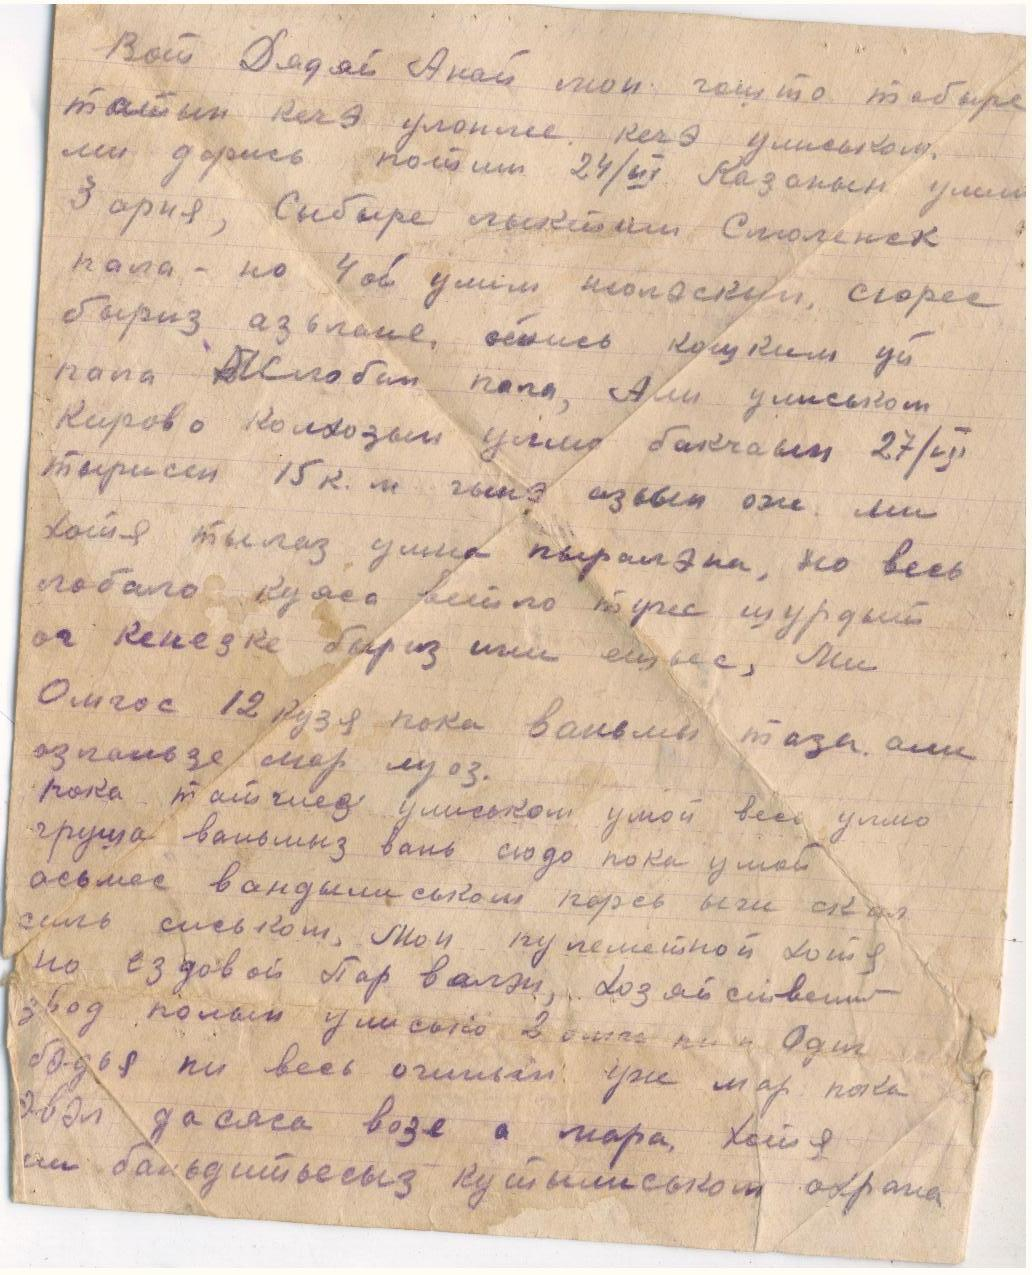 Вот Дядяй Анай мон гошто табыре
татын кечэ улонме. кечэ улиськом.
ми дорись потим 24/III Казанын улим
3 арня, Сыбыре лыктим Смоленск
пала - но 4 ой улим жолэскын, сюрес
быриз азьлане. отись кошким уй
пала Слобам пала, Али улиськом
Кирово колхозын улмо бакчаын 27/III
тырисен 15 к. м гынэ азьын ож. ми
хотя тылаз умна пыралэни, но весь
лобало куяса ветло туж шурдыт
ог кенезке быриз ини ещьёс, Ми
Омгос 12 кузя пока ваньмы таза. али
озпаньзе мар луоз.
пока татчиед улиськом умой весь улмо
груша ваньмыз вань сюдо пока умой
асьмес вандылиськом парсь ыжи скал
силь сиськом, Мон пулеметной хотя
но ездовой Пар валэн, хозяйствент
звод полын улисько 2 отчи пи Один
бадья пи весь огинын уж мар пока
эвэл дасяса возе а мара, хотя
ми бандитьёсыз кутылиськом охрана